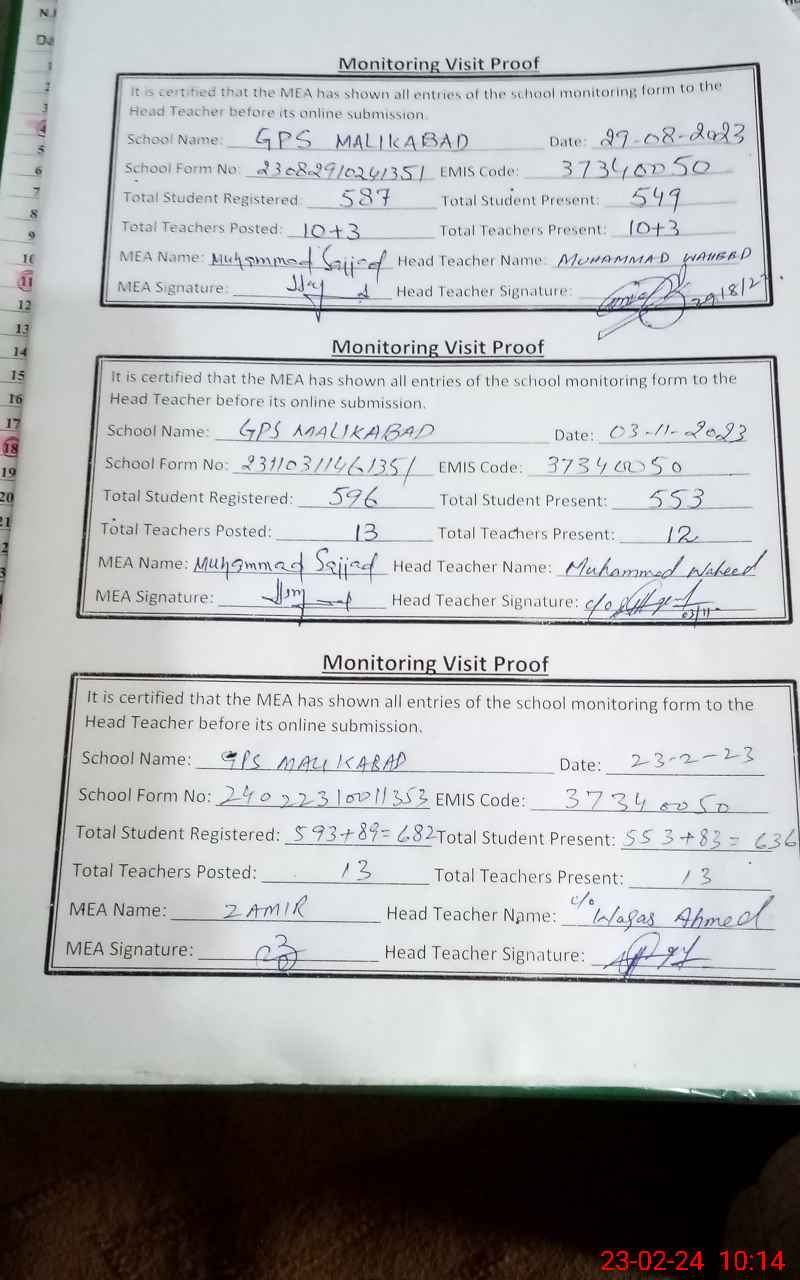 Monitoring Visit Proof
It is certified that the MEA has shown all entries of the school monitoring form to the
Head Teacher before its online submission.
School Name: GPS MALIKABAD Date: 29-08-2023
School Form No: 23082910241351 EMIS Code: 37340050
Total Student Registered: 587 Total Student Present: 549
Total Teachers Posted: 10+3 Total Teachers Present: 10+3
MEA Name: Muhammad Sajjad Head Teacher Name: MUHAMMAD WAHEED
MEA Signature: Head Teacher Signature:
Monitoring Visit Proof
It is certified that the MEA has shown all entries of the school monitoring form to the
Head Teacher before its online submission.
School Name: GPS MALIKABAD Date: 03-11-2023
School Form No: 23110311461351 EMIS Code: 37340050
Total Student Registered: 596 Total Student Present: 553
Total Teachers Posted: 13 Total Teachers Present: 12
MEA Name: Muhammad Sajjad Head Teacher Name: Muhammad Waheed
MEA Signature: Head Teacher Signature: c/o
03/11
Monitoring Visit Proof
It is certified that the MEA has shown all entries of the school monitoring form to the
Head Teacher before its online submission.
School Name: GPS MALIKABAD Date: 23-2-23
School Form No: 24022310011353 EMIS Code: 37340050
Total Student Registered: 593+89=682 Total Student Present: 553+83=636
Total Teachers Posted: 13 Total Teachers Present: 13
MEA Name: ZAMIR Head Teacher Name: c/o Waqas Ahmed
MEA Signature: Head Teacher Signature:
23-02-24 10:14